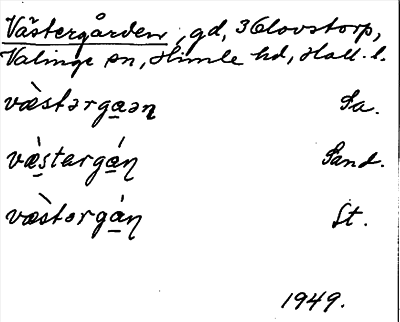 Västergården, gd, 3 Olovstorp,
Valinge sn, Himle hd, Hall. l.
væ̀stərga̲ən Sa.
væ̀stargá̲n Sand.
væ̀storgá̲n St.
1949.